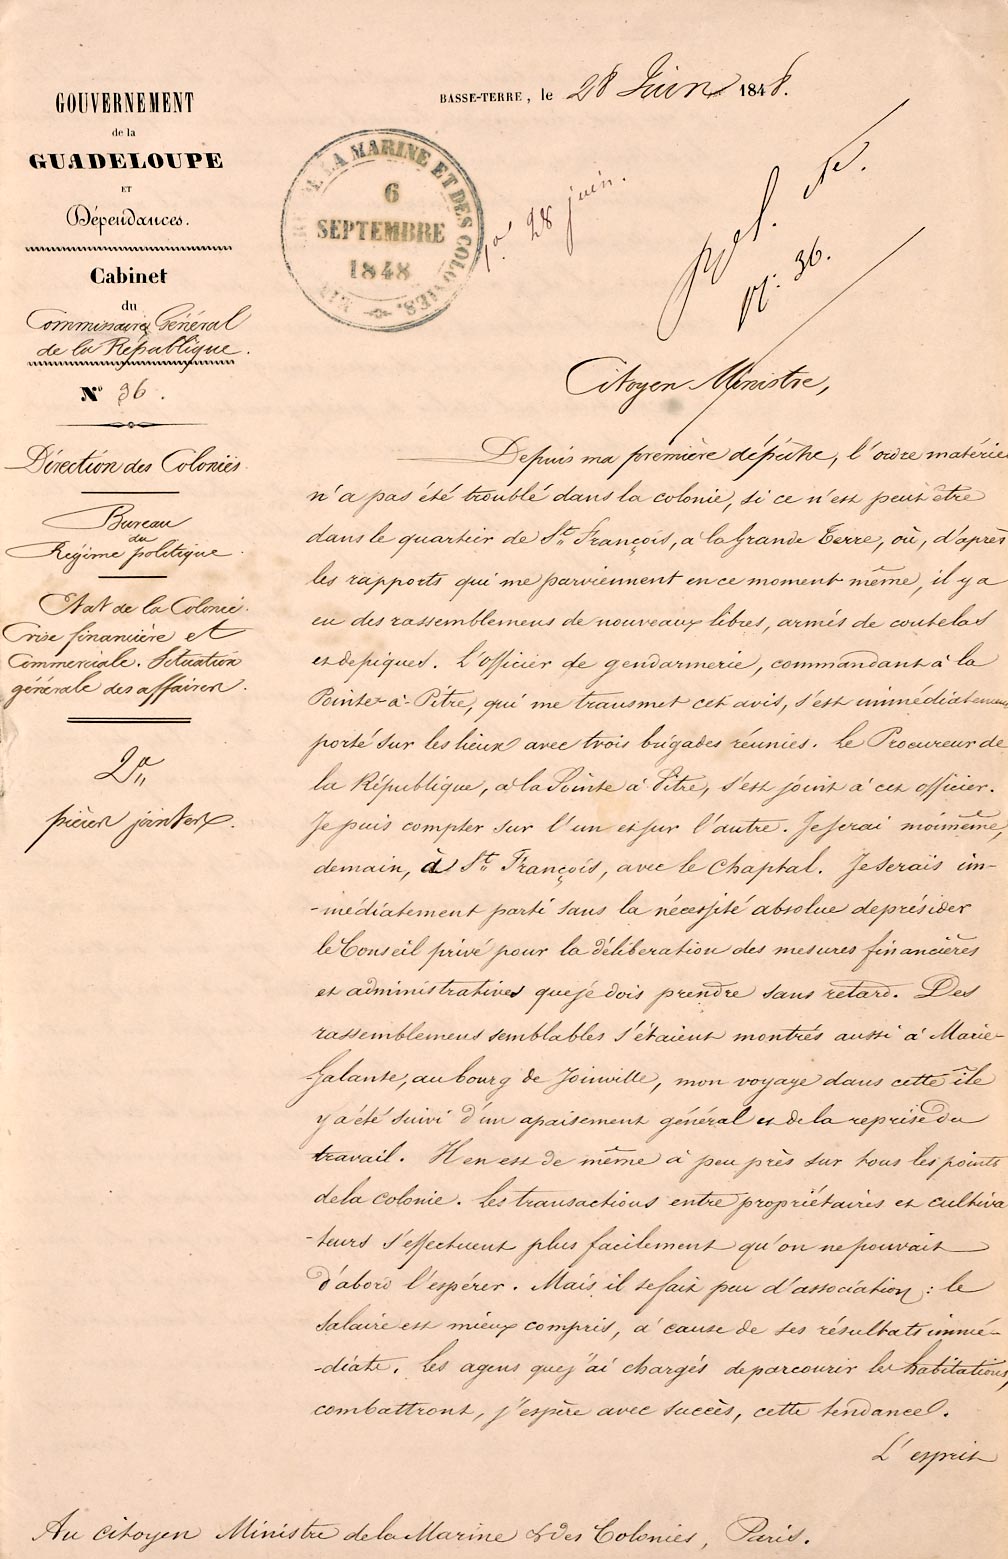 GOUVERNEMENT
de la
GUADELOUPE
ET
Dépendances.
Cabinet
du
Commissaire Général
de la République.
N° 36.
Direction des Colonies
Bureau
du
Régime politique.
Etat de la Colonie.
Crise financière et
Commerciale. Situation
générale des affaires.
pièces jointes.
BASSE-TERRE, le 28 Juin 1848.
LA MARINE ET DES COLONIES.
6
SEPTEMBRE
1848
28 juin.
36.
Citoyen Ministre,
Depuis ma première dépêche, l'ordre matériel
n'a pas été troublé dans la colonie, si ce n'est peut être
dans le quartier de St. François, à la Grande Terre, où, d'après
les rapports qui me parviennent en ce moment même, il y a
eu des rassemblemens de nouveaux libres, armés de coutelas
et de piques. L'officier de gendarmerie, commandant à la
Pointe-à-Pitre, qui me transmet cet avis, s'est immédiatement
porté sur les lieux avec trois brigades réunies. Le Procureur de
la République, à la Pointe à Pitre, s'est joint à cet officier.
Je puis compter sur l'un et sur l'autre. Je serai moi même,
demain, à St. François, avec le Chaptal. Je serais im-
-médiatement parti sans la nécessité absolue de présider
le Conseil privé pour la déliberation des mesures financières
et administratives que je dois prendre sans retard. Des
rassemblemens semblables s'étaient montrés aussi à Marie-
Galante, au bourg de Joinville, mon voyage dans cette île
y a été suivi d'un apaisement général et de la reprise du
travail. Il en est de même à peu près sur tous les points
de la colonie. Les transactions entre propriétaires et cultiva
-teurs s'effectuent plus facilement qu'on ne pouvait
d'abord l'espérer. Mais il se fait peu d'association : le
salaire est mieux compris, à cause de ses résultats immé-
-diats. Les agens que j'ai chargés de parcourir les habitations,
combattront, j'espère avec succès, cette tendance.
L'esprit
Au citoyen Ministre de la Marine & des Colonies, Paris.